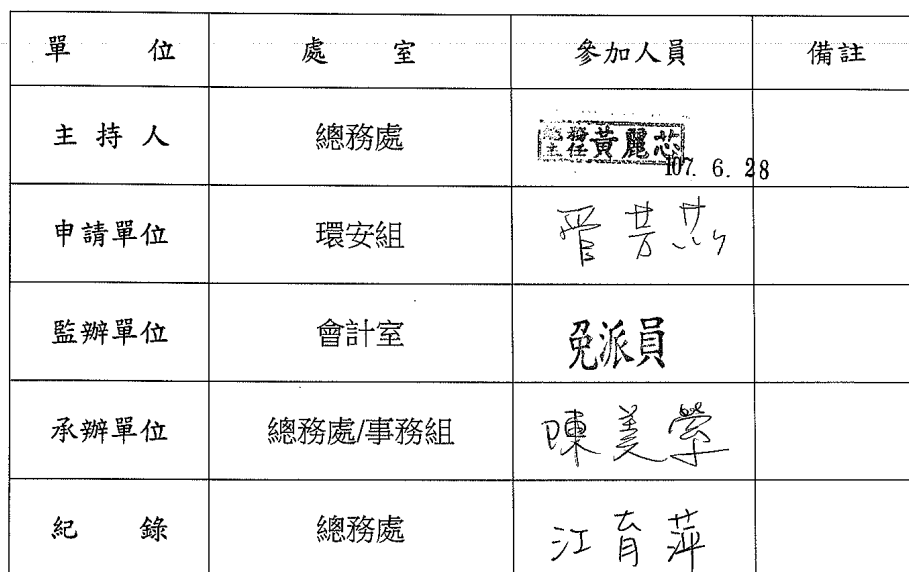 單 位 處 室 參加人員 備註
主 持 人 總務處 總務主任黃麗芯
107. 6. 28
申請單位 環安組 管芳
監辦單位 會計室 免派員
承辦單位 總務處/事務組 陳美瑩
紀 錄 總務處 江育萍